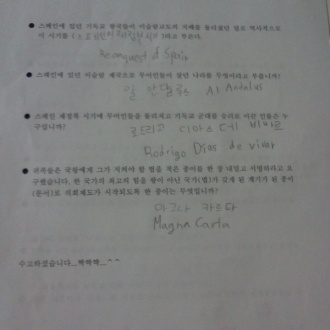 ● 스페인에 있던 기독교 왕국들이 이슬람교도의 지배를 물리쳤던 일로 역사적으로
이 시기를 ( 스페인의 재정복 시기 )라고 부른다.
Reconquest of Spain
● 스페인에 있었던 이슬람 제국으로 무어인들이 살던 나라를 무엇이라고 부릅니까?
알 안달루스 Al Andalus
● 스페인 재정복 시기에 무어인들을 물리치고 기독교 군대를 승리로 이끈 인물은 누
구입니까?
로드리고 디아스 데 비바르
Rodrigo Dias de vivar
● 귀족들은 국왕에게 그가 지켜야 할 법을 적은 종이를 한 장 내밀고 서명하라고 요
구했습니다. 한 국가의 최고의 힘을 왕이 아닌 국가(법)가 갖게 된 계기가 된 종이
(문서)로 의회제도가 시작되도록 한 종이는 무엇입니까?
마그나 카르타
Magna Carta
수고하셨습니다...짝짝짝...^^